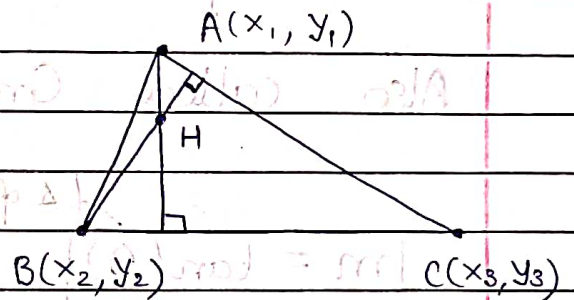 A(x₁, y₁)
H
B(x₂, y₂)
C(x₃, y₃)